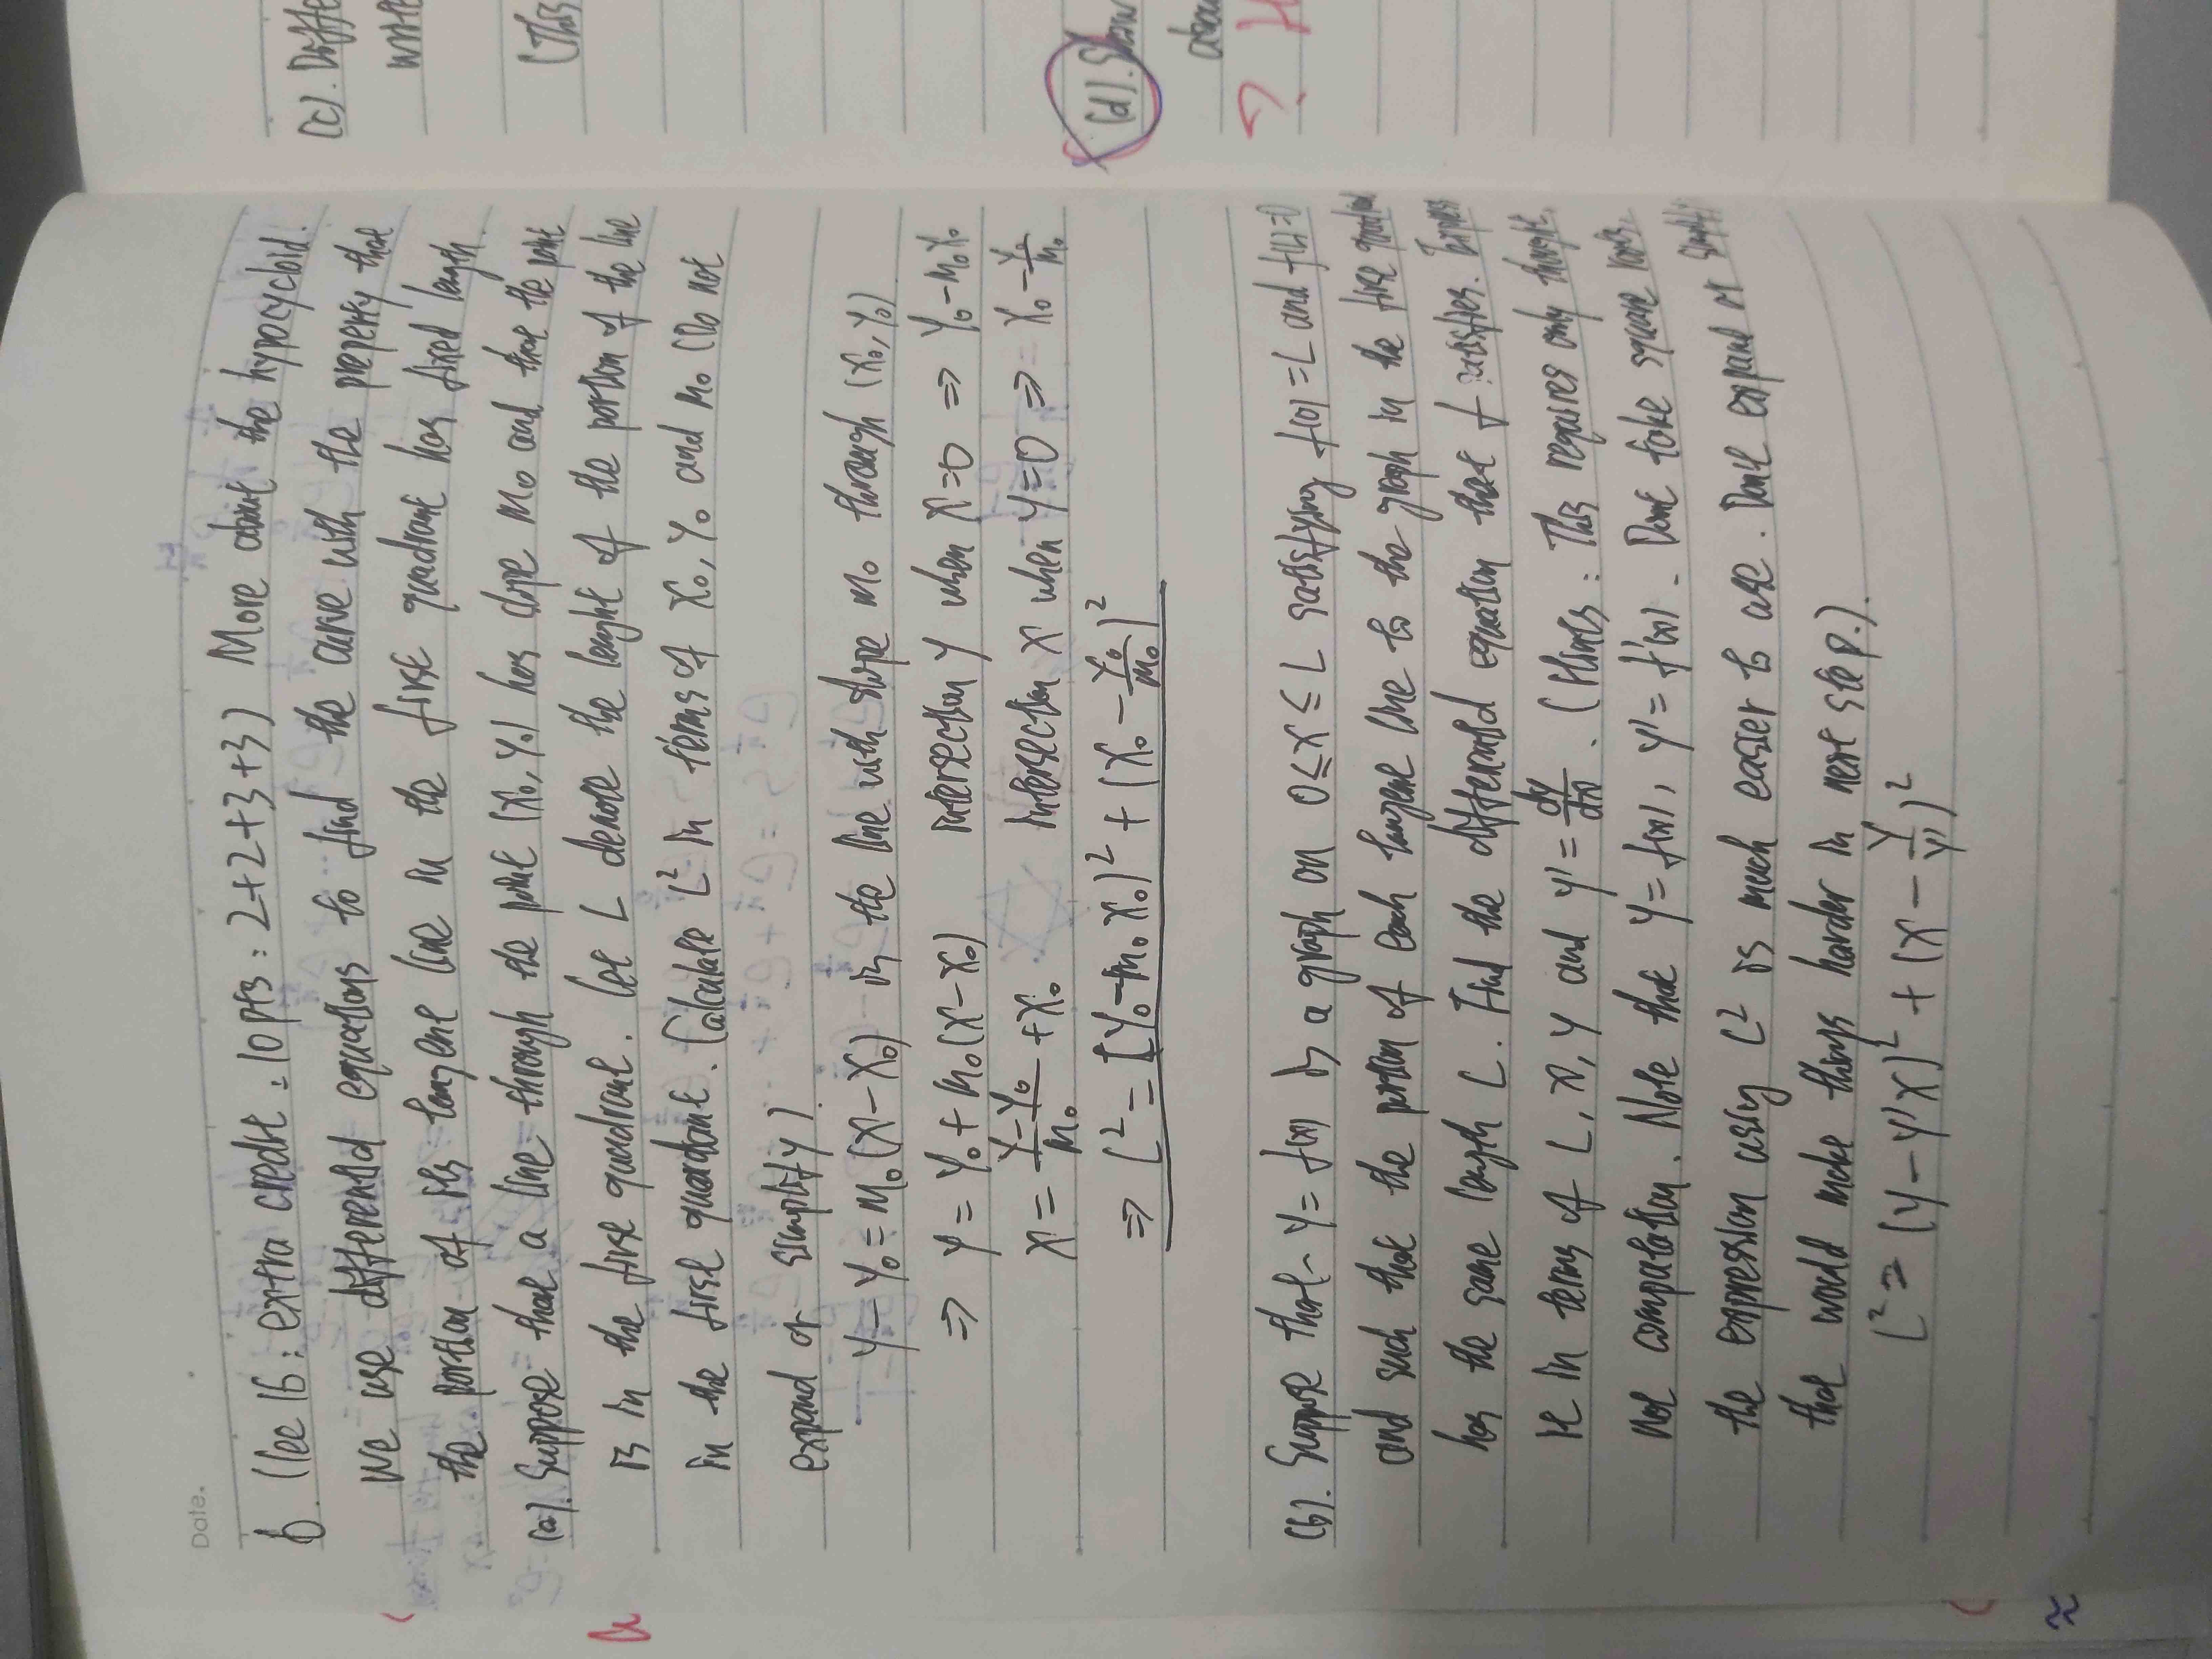 Date.
6. (Lec 16: extra credit: 10pts: 2+2+3+3) More about the hypocycloid.
We use differential equations to find the curve with the property that
the portion of its tangent line in the first quadrant has fixed length
(a). Suppose that a line through the point (x₀, y₀) has slope m₀ and that the point
is in the first quadrant. Let L denote the lenght of the portion of the line
in the first quardant. Calculate L² in terms of x₀, y₀ and m₀ (Do not
expand or simplify).
y - y₀ = m₀(x - x₀) is the line with slope m₀ through (x₀, y₀)
⇒ y = y₀ + m₀(x - x₀) intersection y when x=0 ⇒ y₀ - m₀x₀
x = (y - y₀)/m₀ + x₀ intersection x when y=0 ⇒ x₀ - y/m₀
⇒ L² = [y₀ - m₀x₀)² + (x₀ - y₀/m₀)²
(b). Suppose that y = f(x) is a graph on 0 ≤ x ≤ L satisfying f(0) = L and f(L)=0
and such that the portion of each tangent line to the graph in the first
has the same length L. Find the differential equation that f satisfies. Express
it in terms of L, x, y and y' = dy/dx. (Hints: This requires only thought,
not computation. Note that y = f(x), y' = f'(x). Dont take square roots.
the expression using L² is much easier to use. Dont expand or
that would make things harder in next step.).
L² = (y - y'x)² + (x - y/y')²
(c). Diffe
write
(This
(d). Show
abou
?